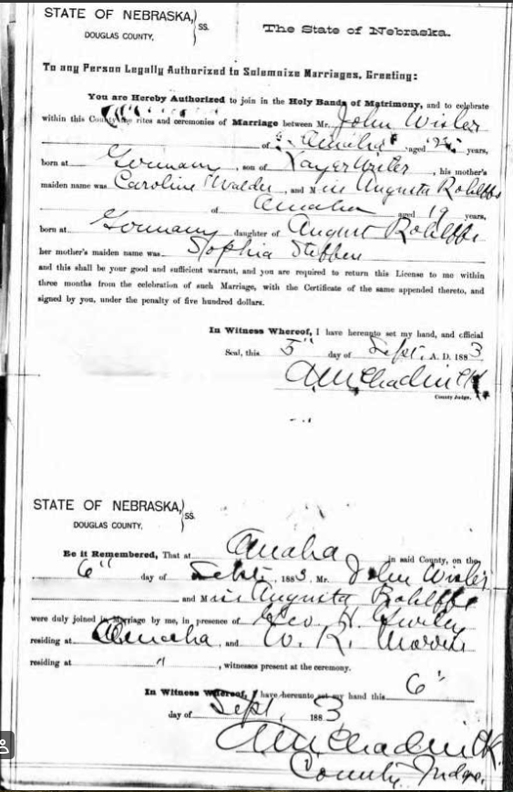 STATE OF NEBRASKA, } SS.
DOUGLAS COUNTY,
The State of Nebraska.
To any Person Legally Authorized to Solemnize Marriages, Greeting:
You are Hereby Authorized to join in the Holy Bands of Matrimony, and to celebrate
within this County the rites and ceremonies of Marriage between Mr. John Wisler
of Omaha aged years,
born at Germany, son of Wisler, his mother's
maiden name was Caroline Walder, and Miss Augusta Rohlffs
of Omaha aged 19 years,
born at Germany daughter of August Rohlffs
her mother's maiden name was Sophia Steffen
and this shall be your good and sufficient warrant, and you are required to return this License to me within
three months from the celebration of such Marriage, with the Certificate of the same appended thereto, and
signed by you, under the penalty of five hundred dollars.
In Witness Whereof, I have hereunto set my hand, and official
Seal, this 5" day of Sept. A. D. 1883
A M Chadwick
County Judge.
STATE OF NEBRASKA, } SS.
DOUGLAS COUNTY.
Be it Remembered, That at Omaha in said County, on the
6" day of Sept. 1883, Mr. John Wisler
and Miss Augusta Rohlffs
were duly joined in Marriage by me, in presence of Geo. H.
residing at Omaha, and W. R. Morris
residing at ", witnesses present at the ceremony.
In Witness Whereof, I have hereunto set my hand this 6"
day of Sept. 1883
A M Chadwick
County Judge.